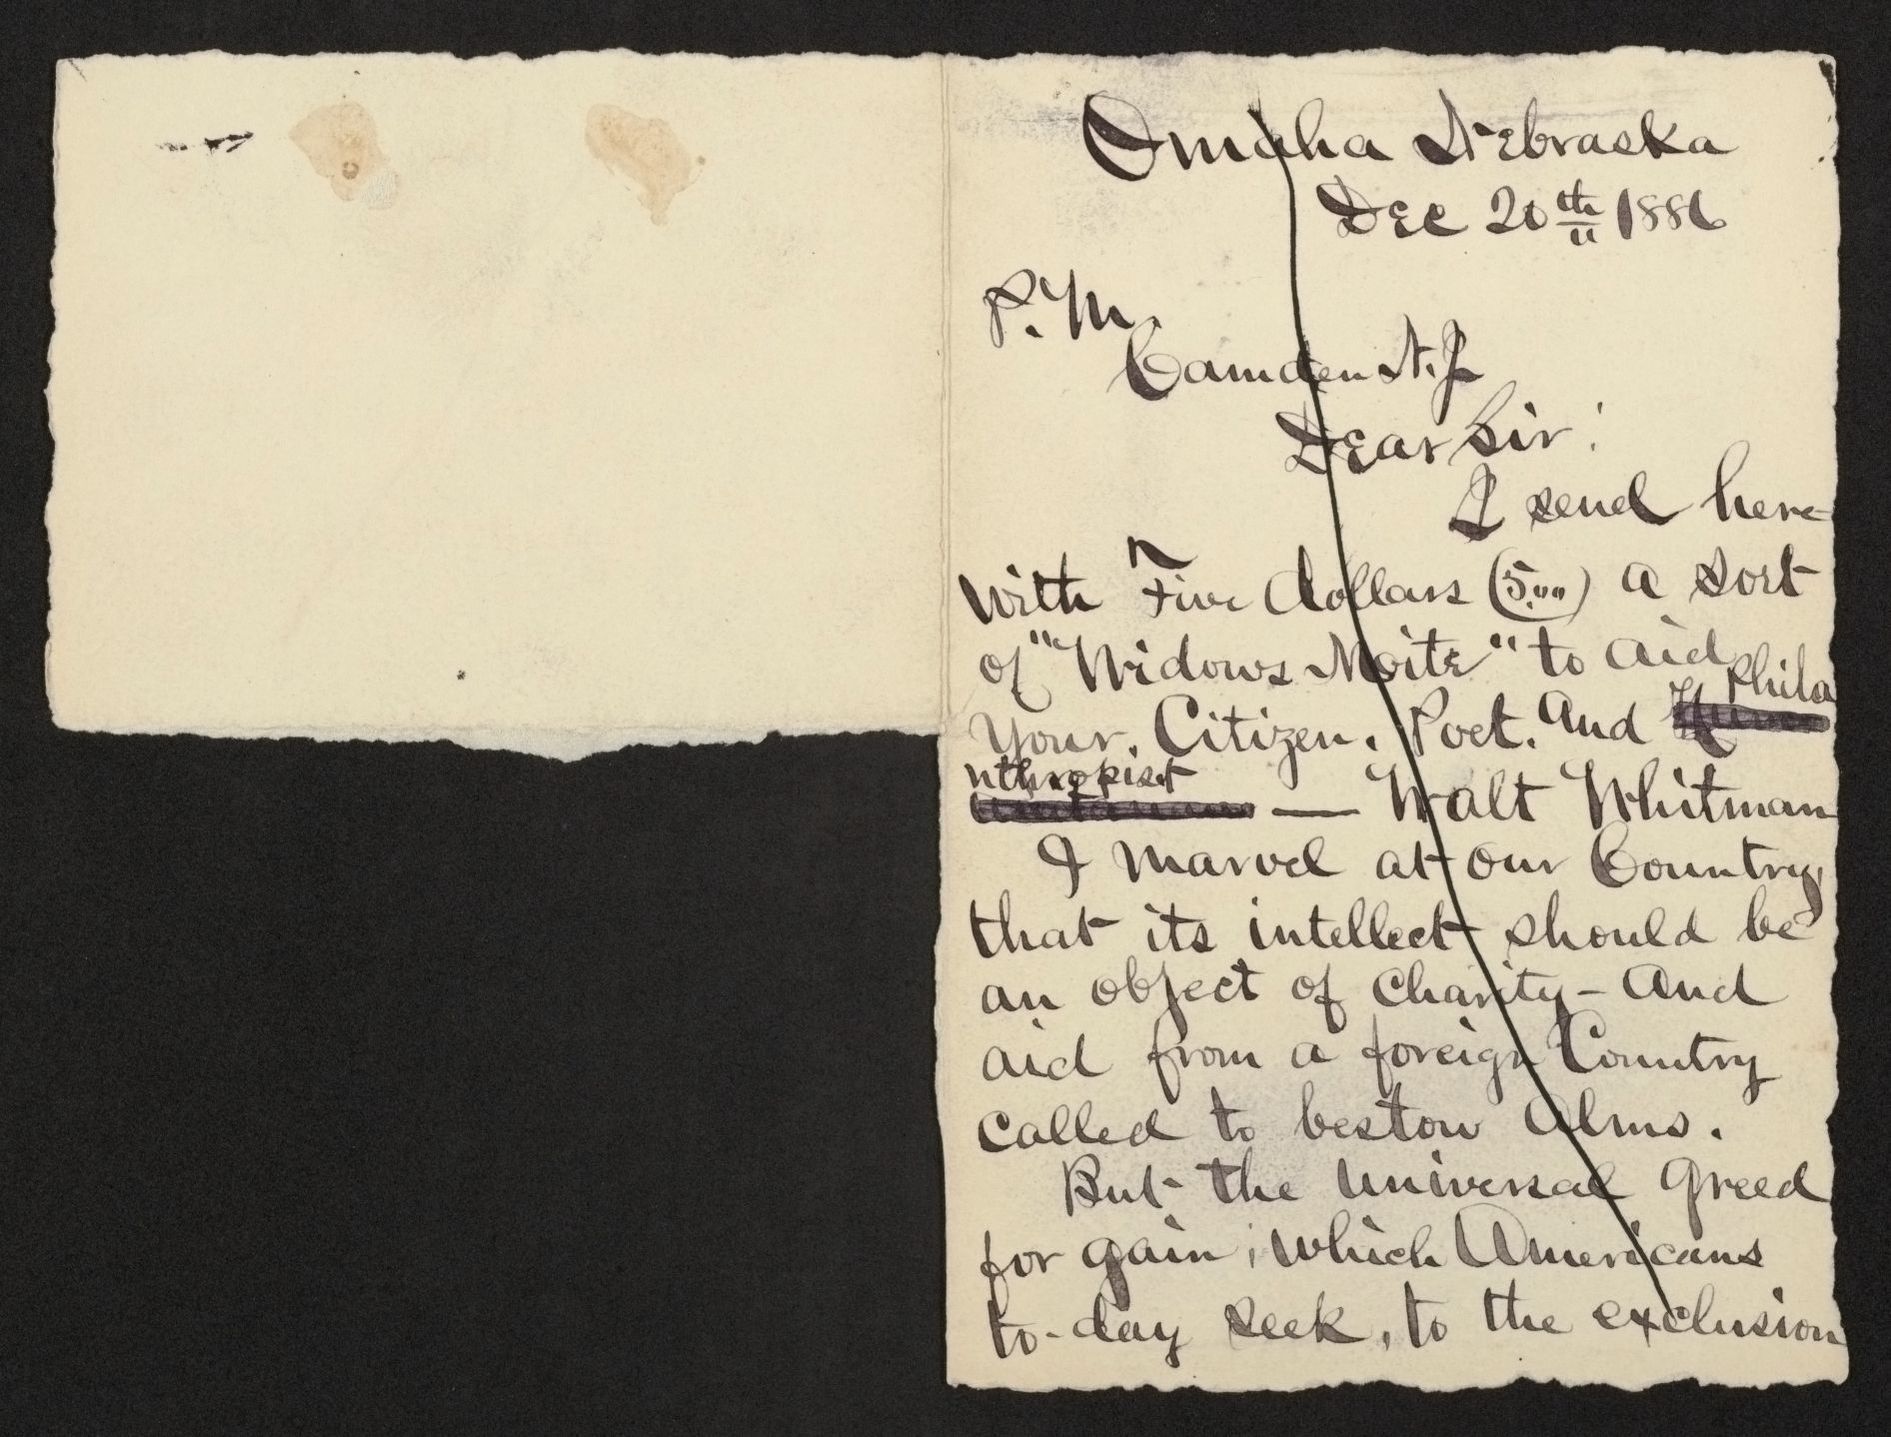 Omaha Nebraska
Dec 20th 1886
P. M.
Camden N. J.
Dear Sir:
I send here-
with Five dollars (5.00) a sort
of "Widows Moite" to aid
Your, Citizen, Poet. And Phila
nthropist — Walt Whitman
I marvel at our Country,
that its intellect should be
an object of charity - And
aid from a foreign Country
called to bestow Alms.
But the Universal greed
for gain, which Americans
to-day seek, to the exclusion